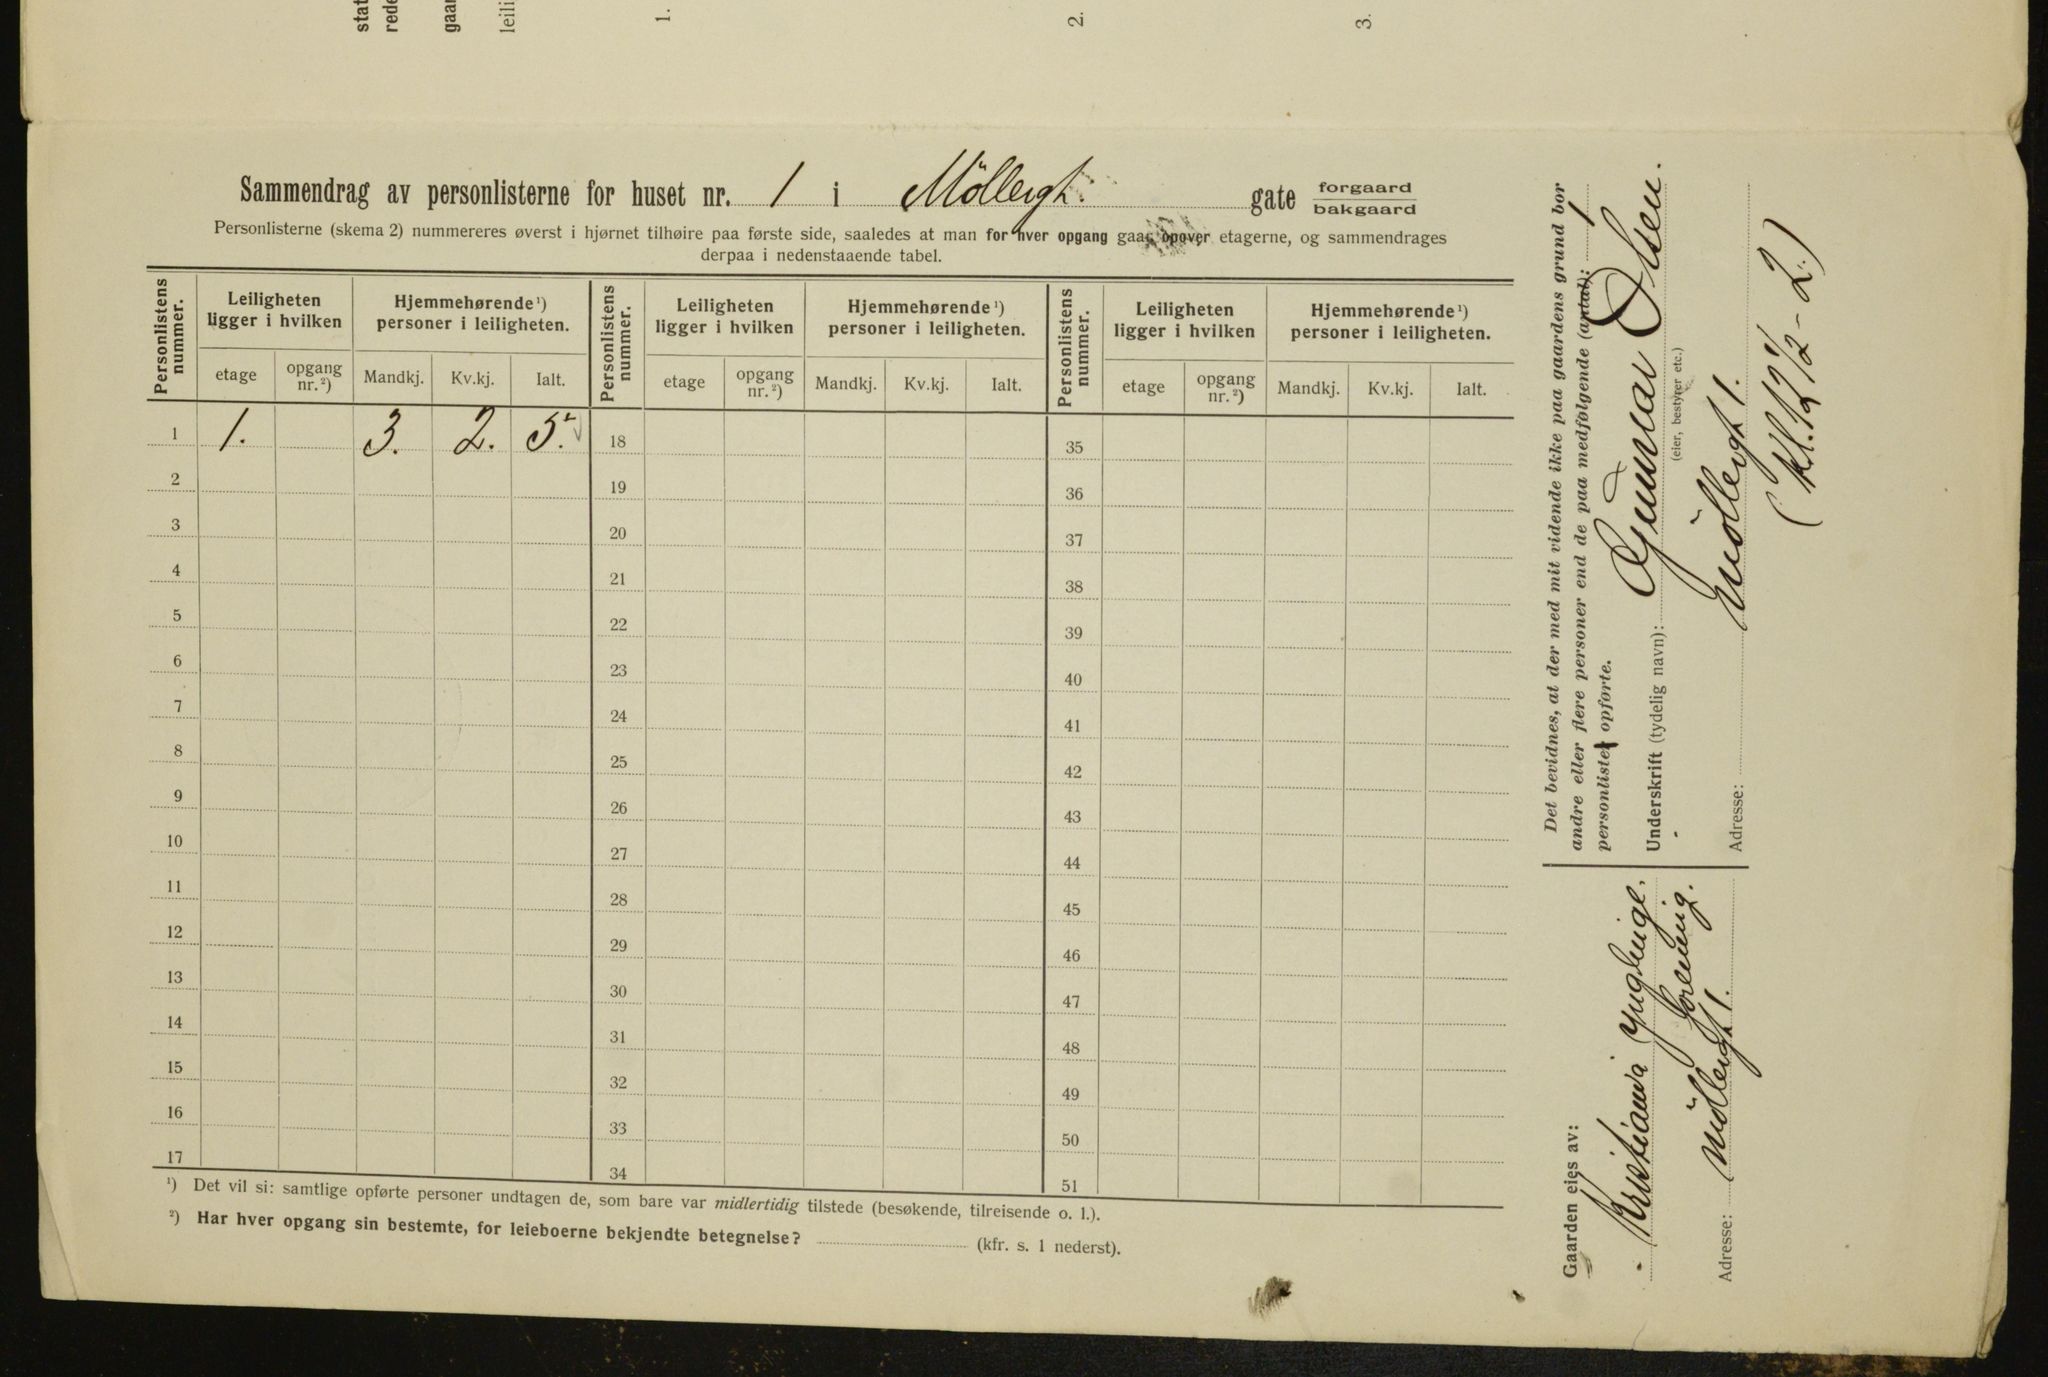 stat
rede
gaar
leili
1.
2.
3.
Sammendrag av personlisterne for huset nr. 1 i Möllergt. gate forgaard bakgaard
Personlisterne (skema 2) nummereres øverst i hjørnet tilhøire paa første side, saaledes at man for hver opgang gaar opover etagerne, og sammendrages
derpaa i nedenstaaende tabel.
Personlistens nummer. Leiligheten ligger i hvilken Hjemmehørende ¹) personer i leiligheten. Personlistens nummer. Leiligheten ligger i hvilken Hjemmehørende ¹) personer i leiligheten. Personlistens nummer. Leiligheten ligger i hvilken Hjemmehørende ¹) personer i leiligheten.
etage opgang nr. ²) Mandkj. Kv.kj. Ialt. etage opgang nr. ²) Mandkj. Kv.kj. Ialt. etage opgang nr. ²) Mandkj. Kv.kj. Ialt.
1 1. 3. 2. 5. 18 35
2 19 36
3 20 37
4 21 38
5 22 39
6 23 40
7 24 41
8 25 42
9 26 43
10 27 44
11 28 45
12 29 46
13 30 47
14 31 48
15 32 49
16 33 50
17 34 51
¹) Det vil si: samtlige opførte personer undtagen de, som bare var midlertidig tilstede (besøkende, tilreisende o. l.).
²) Har hver opgang sin bestemte, for leieboerne bekjendte betegnelse? (kfr. s. 1 nederst).
Det bevidnes, at der med mit vidende ikke paa gaardens grund bor
andre eller flere personer end de paa medfølgende (antal): 1
personlister opførte.
Underskrift (tydelig navn): Gunnar Olsen.
(eier, bestyrer etc.)
Adresse: Möllergt 1.
(Kl. 12 1/2 - 2.)
Gaarden eies av:
Kristiania Ynglinge.
forening.
Adresse: Möllergt 1.